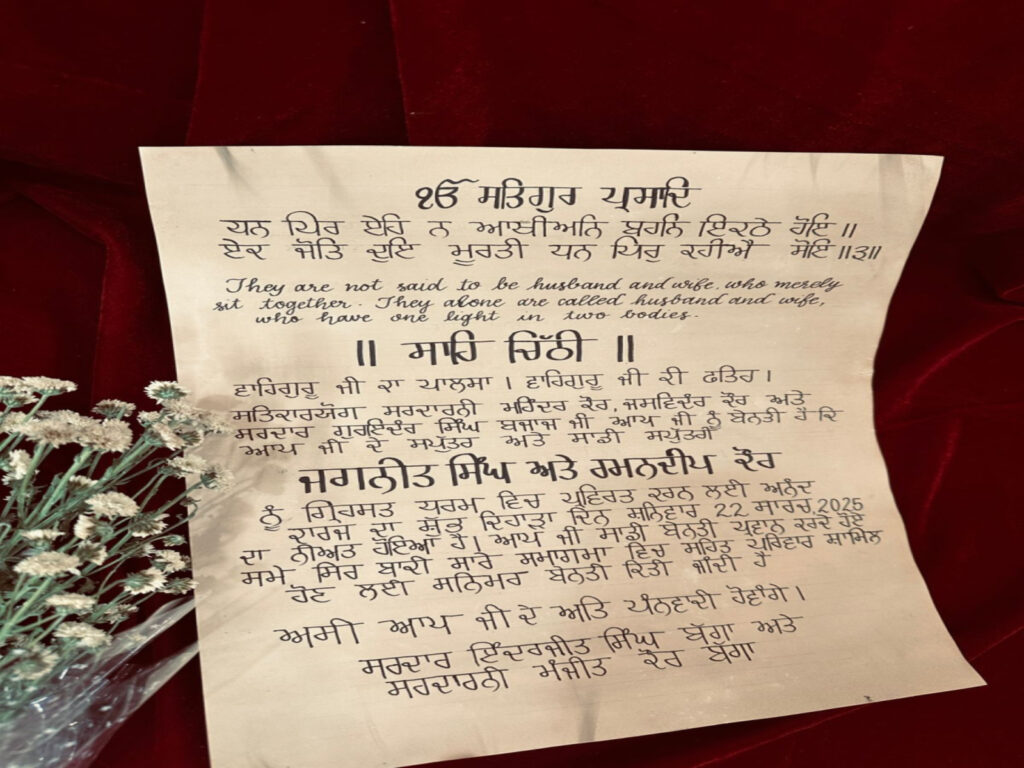 ੴ ਸਤਿਗੁਰ ਪ੍ਰਸਾਦਿ
ਧਨ ਪਿਰ ਏਹਿ ਨ ਆਖੀਅਨਿ ਬਹਨਿ ਇਕਠੇ ਹੋਇ ॥
ਏਕ ਜੋਤਿ ਦੁਇ ਮੂਰਤੀ ਧਨ ਪਿਰੁ ਕਹੀਐ ਸੋਇ ॥੩॥
They are not said to be husband and wife, who merely
sit together. They alone are called husband and wife,
who have one light in two bodies.
॥ ਸਾਹੇ ਚਿੱਠੀ ॥
ਵਾਹਿਗੁਰੂ ਜੀ ਕਾ ਖਾਲਸਾ । ਵਾਹਿਗੁਰੂ ਜੀ ਕੀ ਫਤਿਹ ।
ਸਤਿਕਾਰਯੋਗ ਸਰਦਾਰਨੀ ਮਹਿੰਦਰ ਕੌਰ, ਜਸਵਿੰਦਰ ਕੌਰ ਅਤੇ
ਸਰਦਾਰ ਗੁਰਇੰਦਰ ਸਿੰਘ ਬਜਾਜ ਜੀ ਆਪ ਜੀ ਨੂੰ ਬੇਨਤੀ ਹੈ ਕਿ
ਆਪ ਜੀ ਦੇ ਸਪੁੱਤਰ ਅਤੇ ਸਾਡੀ ਸਪੁੱਤਰੀ
ਜਗਨੀਤ ਸਿੰਘ ਅਤੇ ਰਮਨਦੀਪ ਕੌਰ
ਨੂੰ ਗ੍ਰਿਹਸਤ ਧਰਮ ਵਿਚ ਪ੍ਰਵਿਰਤ ਕਰਨ ਲਈ ਅਨੰਦ
ਕਾਰਜ ਦਾ ਸ਼ੁਭ ਦਿਹਾੜਾ ਦਿਨ ਸ਼ਨਿਵਾਰ 22 ਮਾਰਚ, 2025
ਦਾ ਨੀਅਤ ਹੋਇਆ ਹੈ। ਆਪ ਜੀ ਸਾਡੀ ਬੇਨਤੀ ਪ੍ਰਵਾਨ ਕਰਦੇ ਹੋਏ
ਸਮੇਂ ਸਿਰ ਬਾਕੀ ਸਾਰੇ ਸਮਾਗਮਾ ਵਿਚ ਸਹਿਤ ਪਰਿਵਾਰ ਸ਼ਾਮਿਲ
ਹੋਣ ਲਈ ਸਨਿਮਰ ਬੇਨਤੀ ਕਿਤੀ ਜਾਂਦੀ ਹੈ
ਅਸੀ ਆਪ ਜੀ ਦੇ ਅਤਿ ਧੰਨਵਾਦੀ ਹੋਵਾਂਗੇ ।
ਸਰਦਾਰ ਇੰਦਰਜੀਤ ਸਿੰਘ ਬੱਗਾ ਅਤੇ
ਸਰਦਾਰਨੀ ਮੰਜੀਤ ਕੌਰ ਬੱਗਾ